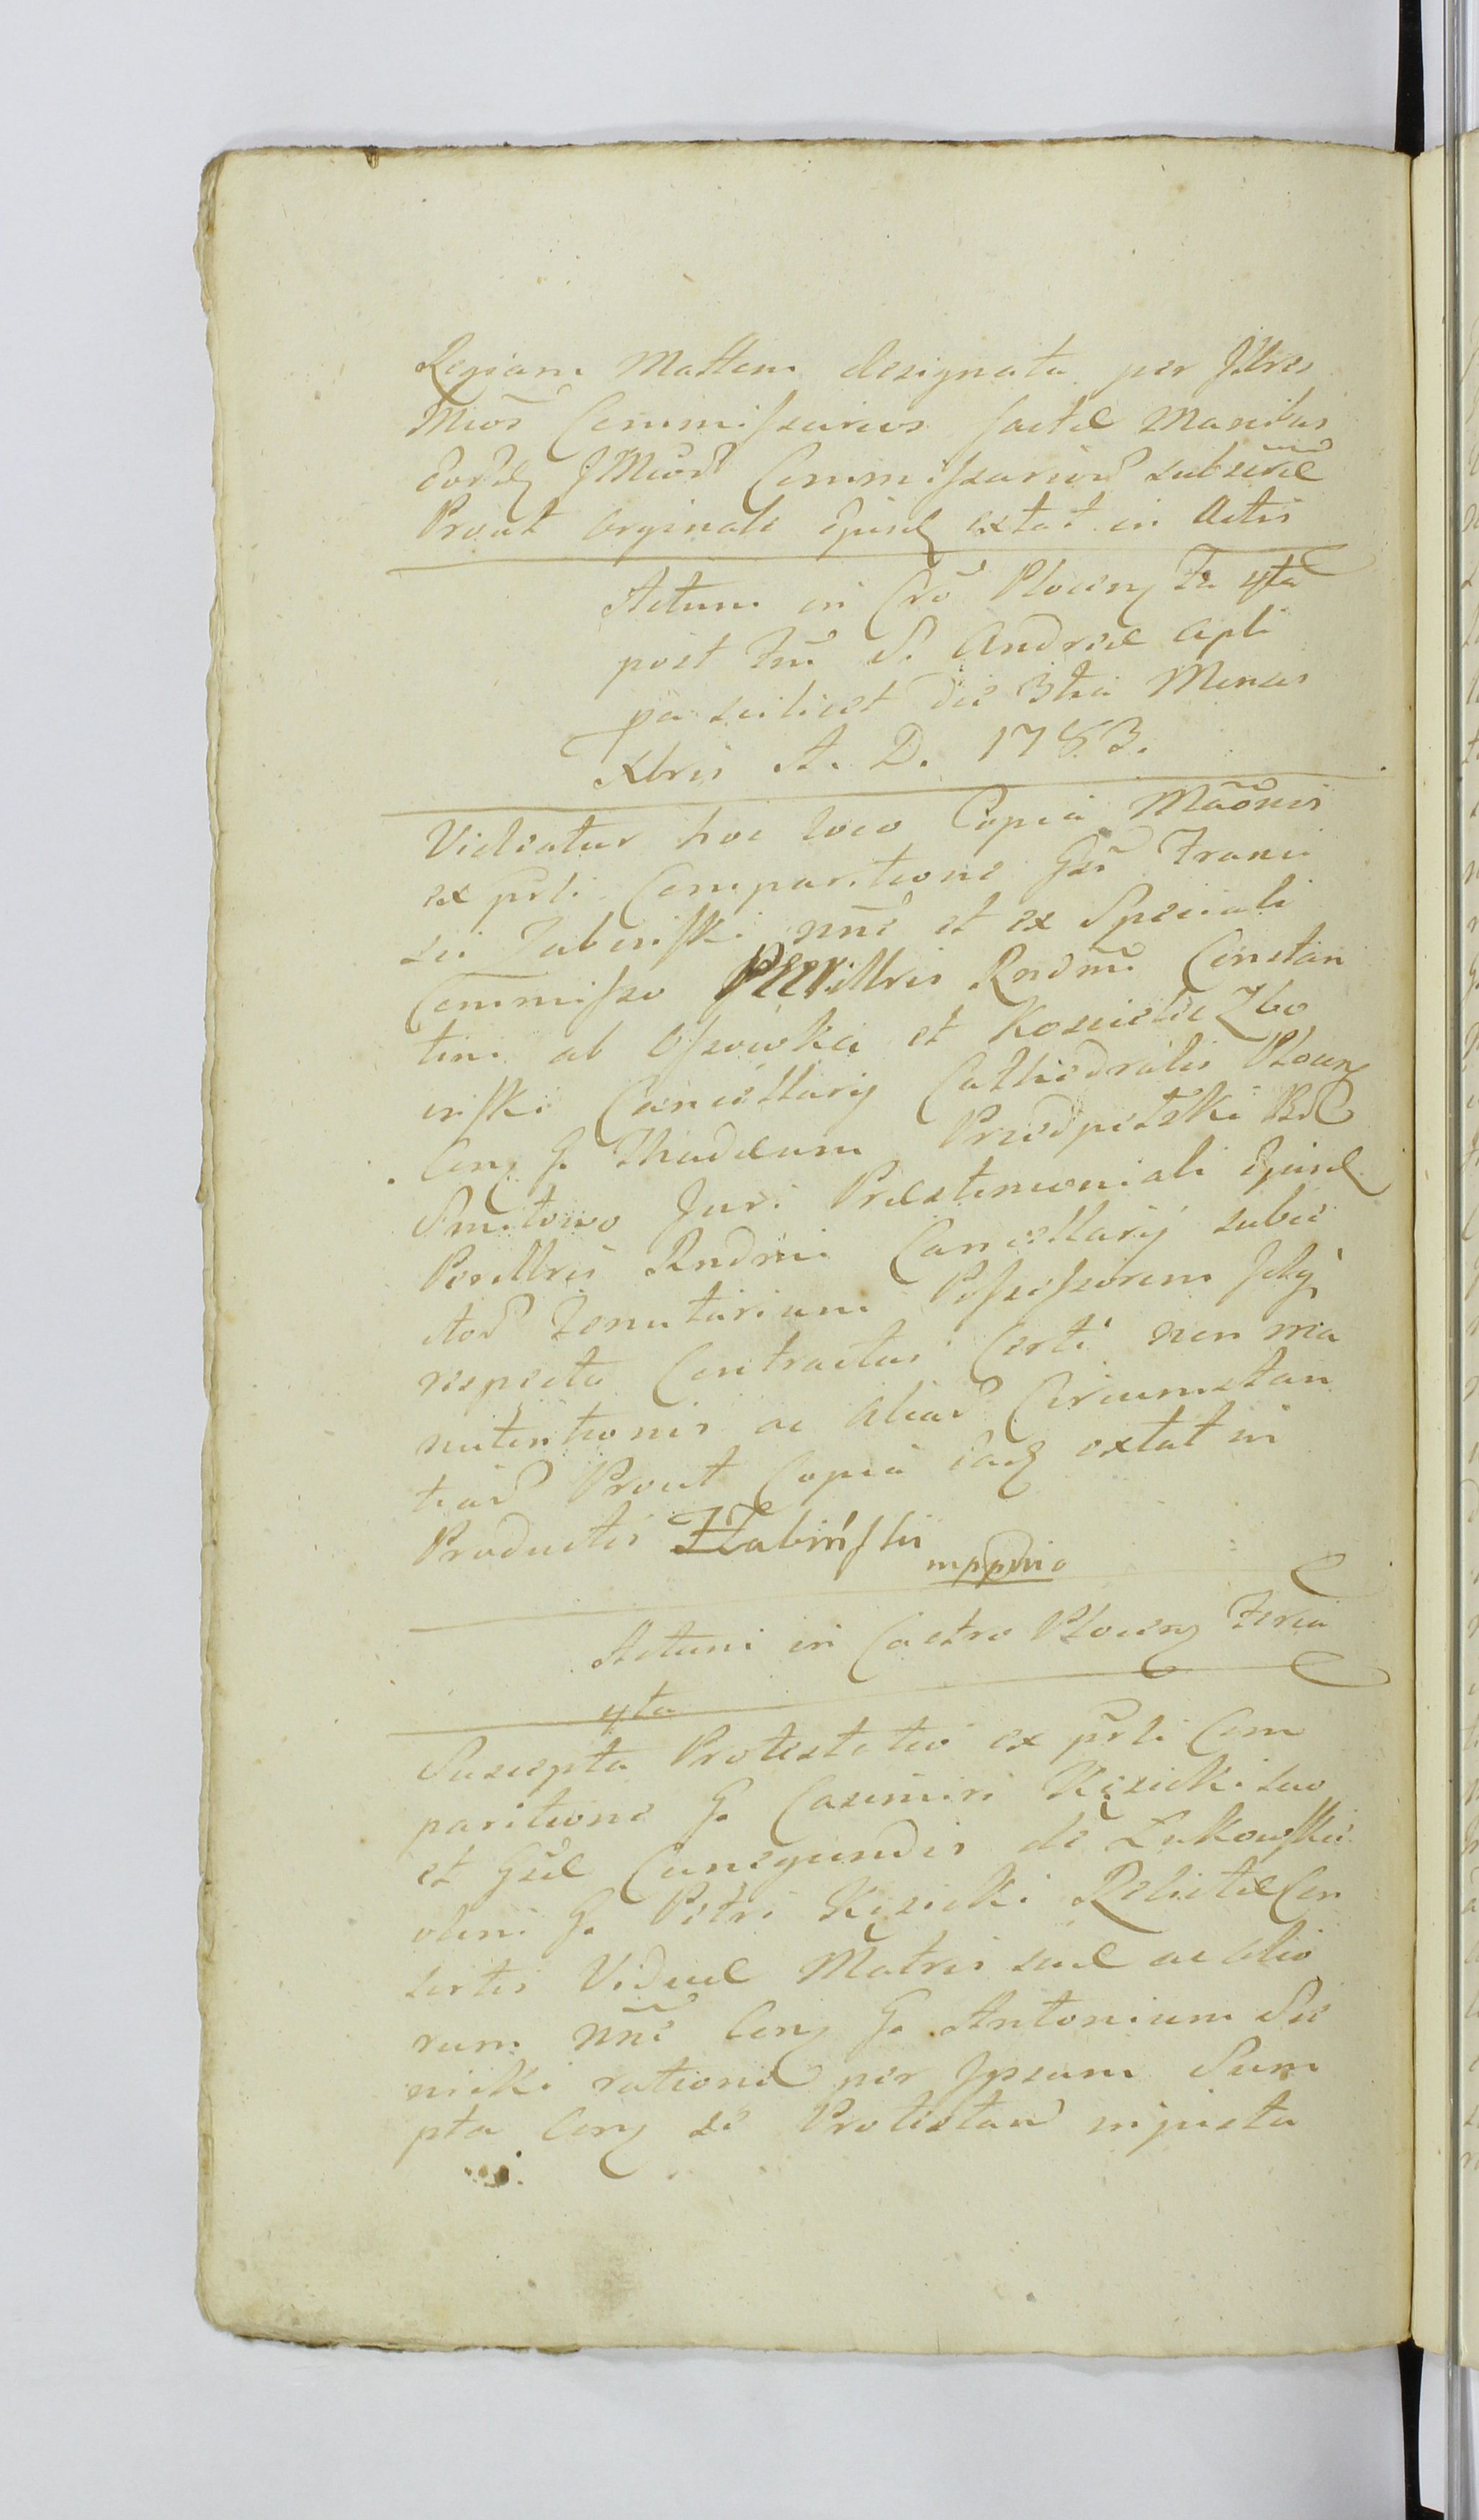 Regiam Mattem designata per Illres
Mios Commissarios factae Manibus
eord. JMior. Commissarior. subscrae
Prout orginale ejusd. extat in Actis
Actum in Cro Plocen. Fa 4ta
post Fm S. Andreae Apli
pa scilicet die 3tia Mensis
Xbris A. D. 1783.
Videatur hoc loco Copia Maonis
ex psli Comparitione Gsi Franci
sci Jabinski nne et ex Speciali
Commisso Perillris Rndmi Constan
tini ab Ossowka et Koscielec Zbo
inski Cancellarij Cathedralis Plocen.
Con. G. Thadaeum Przedpelski Bd
Smitowo Juri Praestimoniali Ejusd.
Perillris Rndmi Cancellarij subie
ctor. Tenutarium Possessorem
respectu Contractus Certi non ma
nutentionis ac aliar. Circumstan
tiar. Prout Copia ead. extat in
Productis FJabinski
mppria
Actum in Castro Plocen. Feria
4ta
Suscepta Protestatio ex psli Com
paritione G. Casimiri Kęsicki suo
et Gsae Cunegundis de Łukowskie
olim G. Petri Kęsicki Relictae Con
sortis Viduae Matris suae ac alio
rum nne Con. G. Antonium Sie
nicki ratione per Ipsum Sum
pta Con. se Protestan. injusta